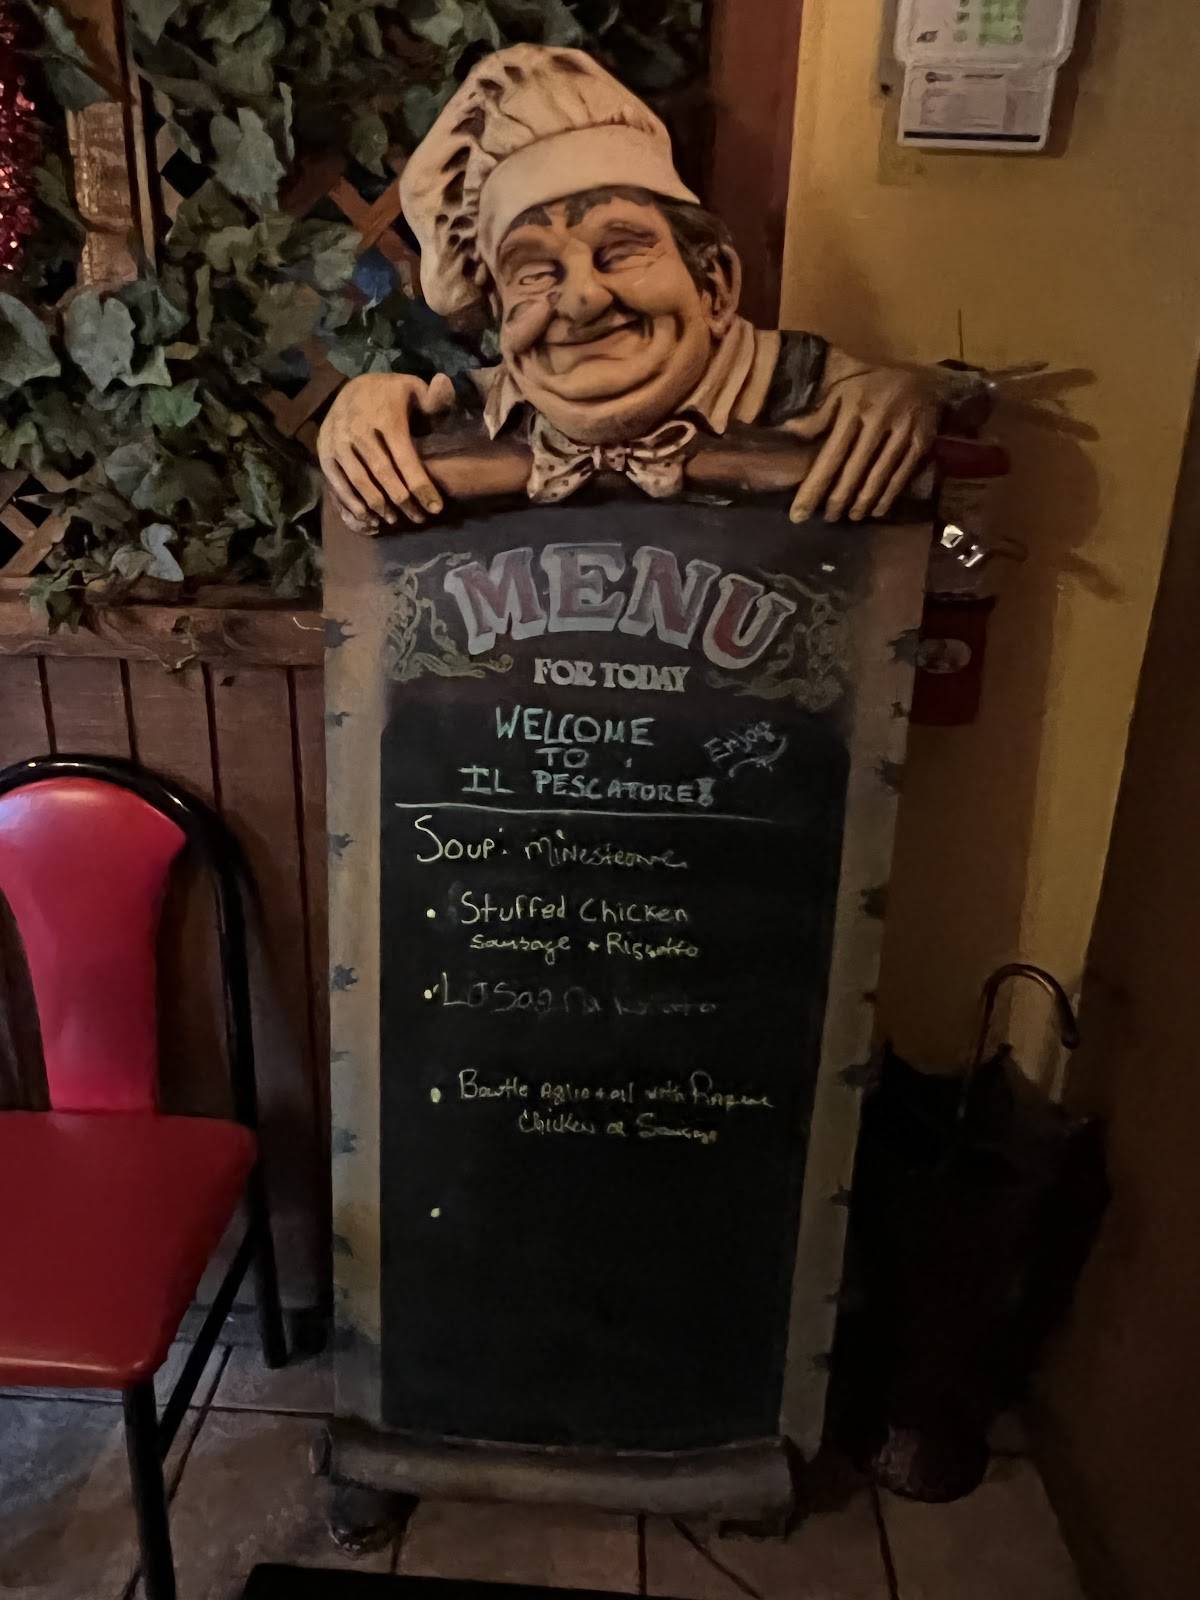 MENU
FOR TODAY
WELCOME
TO
IL PESCATORE!
Enjoy
Soup: Minestrone
• Stuffed Chicken
Sausage + Rissotto
• LaSagna
• Bowtie Aglio + oil with
Chicken or Sausage
•